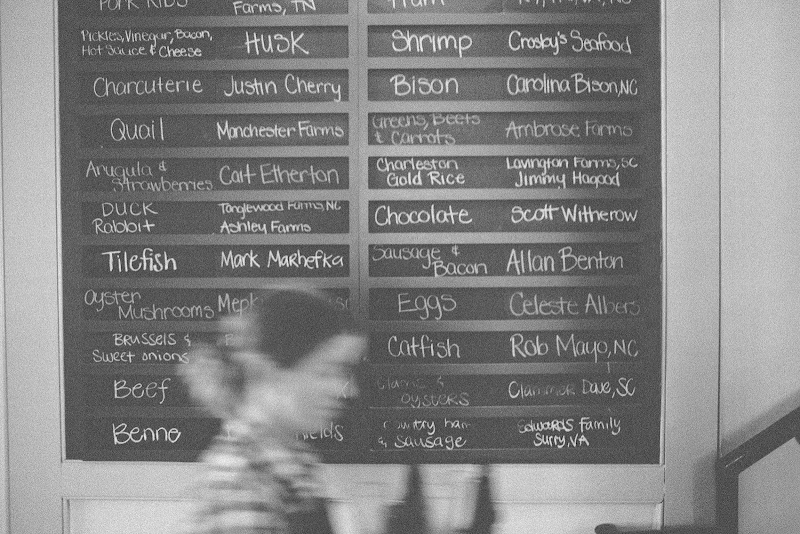 PORK RIBS
Farms, TN
Pickles, Vinegar, Bacon,
Hot Sauce & Cheese
HUSK
Charcuterie
Justin Cherry
Quail
Manchester Farms
Arugula &
Strawberries
Cait Etherton
DUCK
Rabbit
Tanglewood Farms, NC
Ashley Farms
Tilefish
Mark Marhefka
Oyster
Mushrooms
BRUSSELS &
Sweet onions
Beef
Benne
Ham
Shrimp
Crosby's Seafood
Bison
Carolina Bison, NC
Greens, Beets
& Carrots
Ambrose Farms
Charleston
Gold Rice
Lavington Farms, SC
Jimmy Hagood
Chocolate
Scott Witherow
Sausage &
Bacon
Allan Benton
Eggs
Celeste Albers
Catfish
Rob Mayo, NC
Clams &
oysters
Clammer Dave, SC
Country ham
& sausage
Edwards Family
Surry, VA